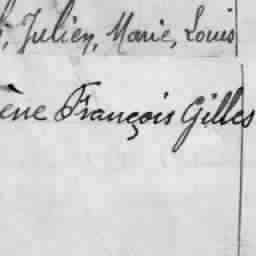 Julien, Marie, Louis
ène François Gilles